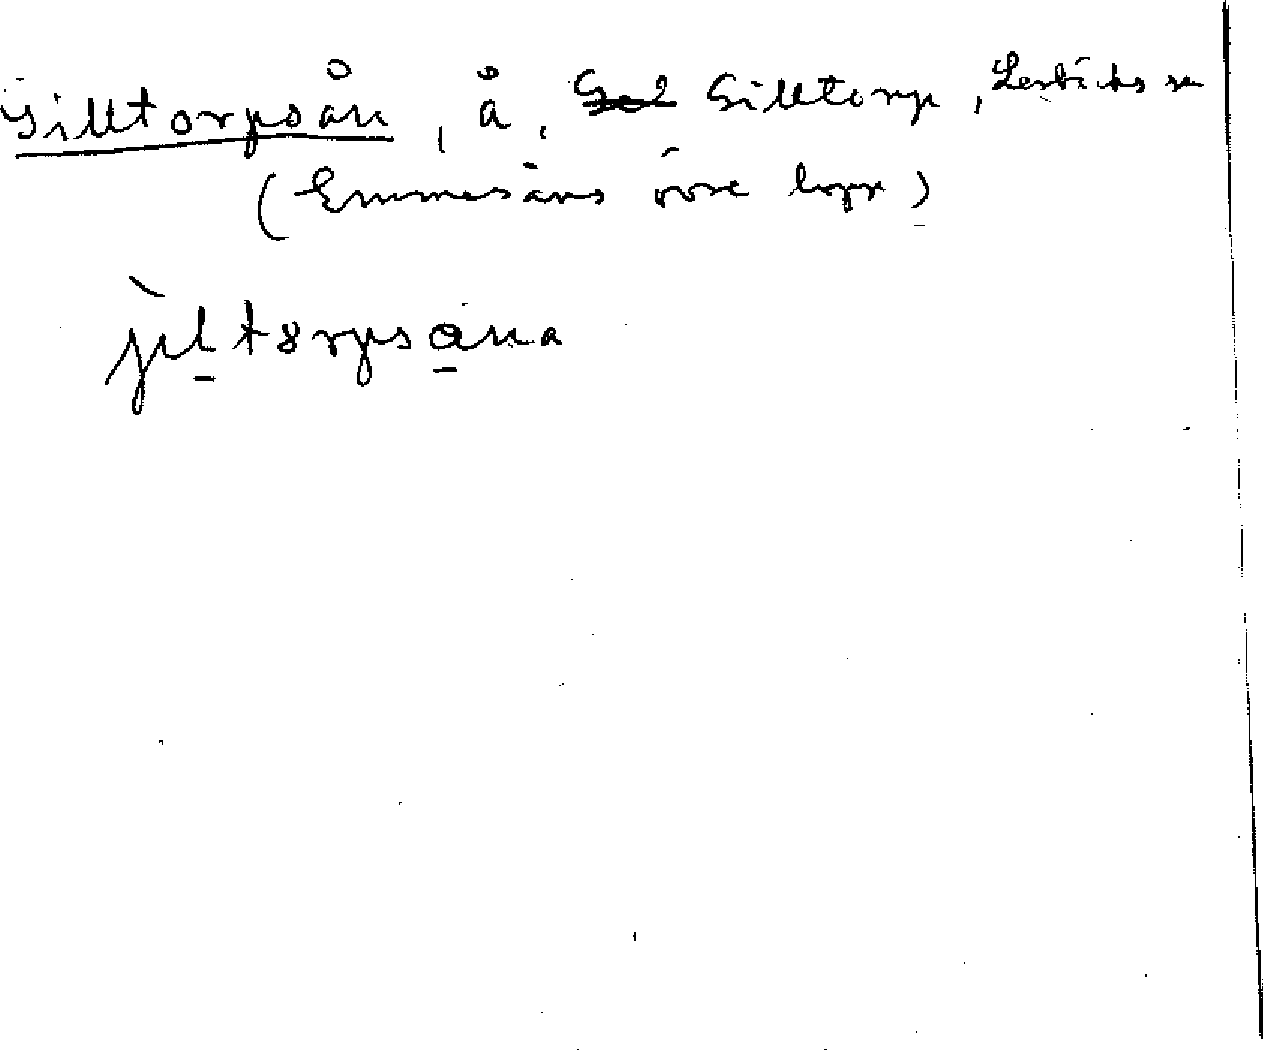 Gilltorpsån, å, Gilltorp, Lerbäcks sn
(Emmeåns övre lopp)
jıltorpsåna